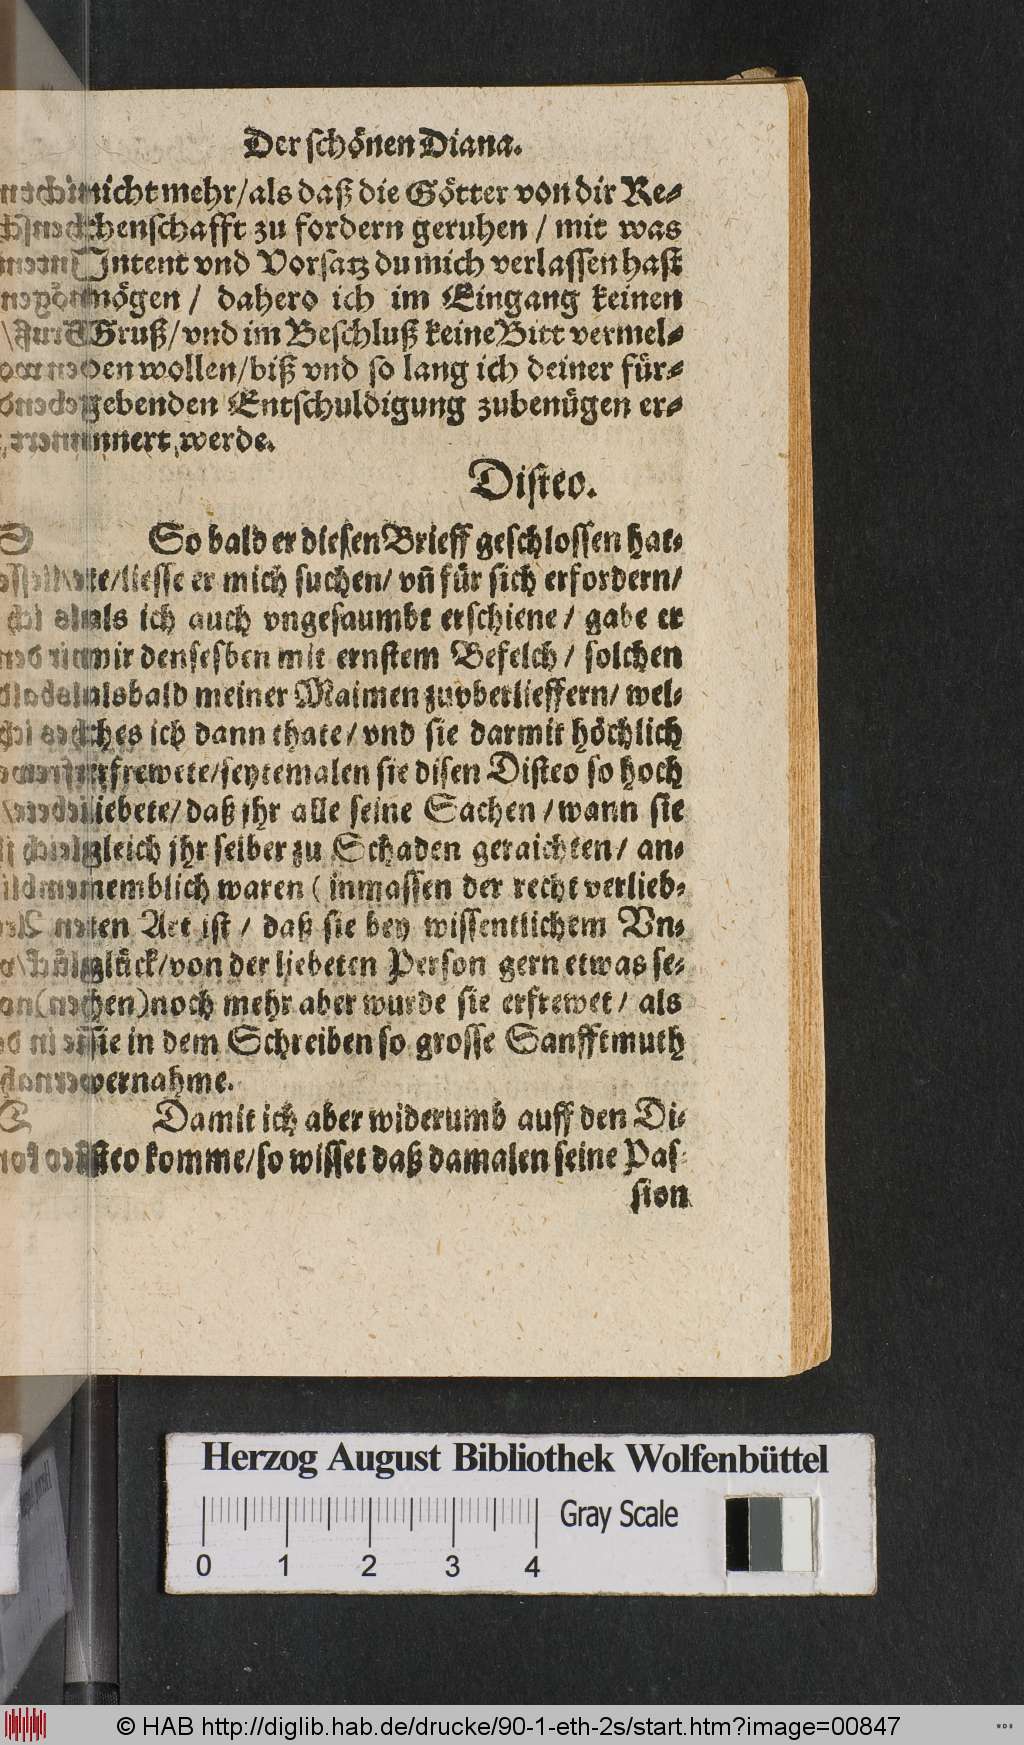 Der schönen Diana.
nicht mehr/als daß die Götter von dir Re-
chenschafft zu fordern geruhen / mit was
Intent vnd Vorsatz du mich verlassen hast
mögen / dahero ich im Eingang keinen
Gruß/vnd im Beschluß keine Bitt vermel-
den wollen/biß vnd so lang ich deiner für-
gebenden Entschuldigung zubenügen er-
innert werde.
Disteo.
So bald er diesen Brieff geschlossen hat-
te/liesse er mich suchen/ vñ für sich erfordern/
als ich auch vngesaumbt erschiene / gabe er
mir densesben mit ernstem Befelch / solchen
alsbald meiner Maimen zuvberlieffern/ wel-
ches ich dann thate/ vnd sie darmit höchlich
erfrewete/seytemalen sie disen Disteo so hoch
liebete/ daß jhr alle seine Sachen / wann sie
gleich jhr selber zu Schaden geraichten/ an-
nemblich waren ( inmassen der recht verlieb-
ten Art ist / daß sie bey wissentlichem Vn-
glück/von der liebeten Person gern etwas se-
hen)noch mehr aber wurde sie erfrewet / als
sie in dem Schreiben so grosse Sanfftmuth
vernahme.
Damit ich aber widerumb auff den Di-
steo komme/so wisset daß damalen seine Pas-
sion
Herzog August Bibliothek Wolfenbüttel
0 1 2 3 4
Gray Scale
© HAB http://diglib.hab.de/drucke/90-1-eth-2s/start.htm?image=00847